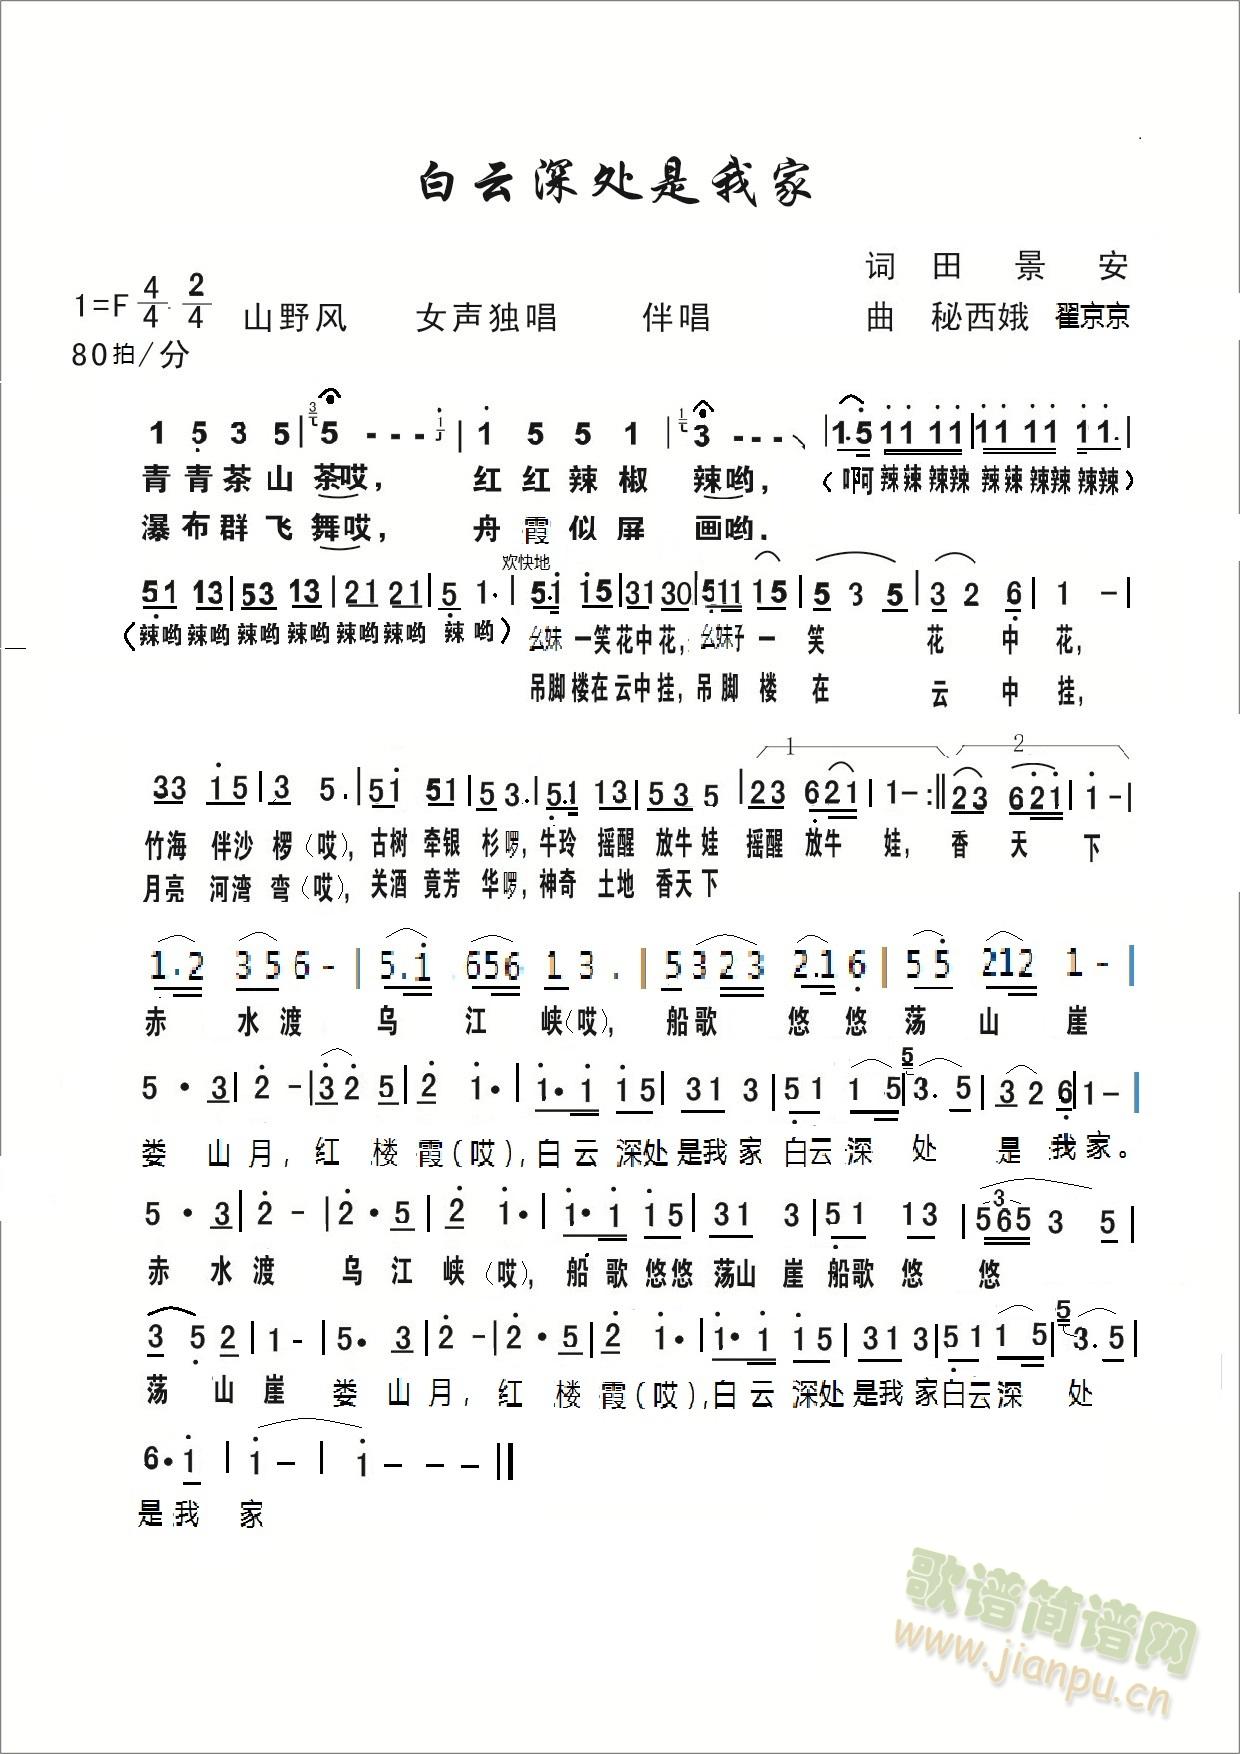 白云深处是我家
词 田 景 安
1=F 4/4 2/4 山野风 女声独唱 伴唱 曲 秘西娥 翟京京
80拍/分
1 5 3 5 | 5 - - - | 1 5 5 1 | 3 - - - | 1·5 11 11 | 11 11 11 |
青青茶山茶哎, 红红辣椒 辣哟, (啊辣辣辣辣 辣辣辣辣辣辣)
瀑布群飞舞哎, 舟霞似屏 画哟.
欢快地
51 13 | 53 13 | 21 21 | 5 1· | 5·1 15 | 31 30 | 511 15 | 5 3 5 | 3 2 6 | 1 - |
(辣哟辣哟辣哟辣哟辣哟辣哟 辣哟) 幺妹一笑花中花,幺妹子一 笑 花 中 花,
吊脚楼在云中挂,吊脚楼 在 云 中 挂,
1 2
33 15 | 3 5· | 51 51 | 53· | 5·1 13 | 53 5 | 23 621 | 1- :‖ 23 621 | 1- |
竹海 伴沙 椤(哎),古树 牵银 杉啰,牛玲 摇醒 放牛娃 摇醒 放牛 娃,香 天 下
月亮 河湾 弯(哎),关酒 竟芳 华啰,神奇 土地 香天下
1·2 356 - | 5·1 656 13· | 5323 2·16 | 55 212 1- |
赤 水渡 乌 江 峡(哎), 船歌 悠悠荡 山 崖
5·3 | 2 - | 32 5 | 2 1· | 1·1 15 | 31 3 | 51 15 | 5 3·5 | 32 6 | 1- |
娄 山月,红 楼霞(哎),白云深处是我家白云深 处 是我家。
5·3 | 2 - | 2·5 | 2 1· | 1·1 15 | 31 3 | 51 13 | 3 565 3 5 |
赤 水渡 乌江峡(哎),船歌悠悠荡山崖船歌悠 悠
3 5 2 | 1 - | 5·3 | 2 - | 2·5 | 2 1· | 1·1 15 | 31 3 | 51 | 1 5 | 5 3·5 |
荡 山崖 娄 山月,红 楼霞(哎),白云深处是我家白云深 处
6·1 | 1 - | 1 - - - ‖
是我 家
歌谱简谱网
www.jianpu.cn